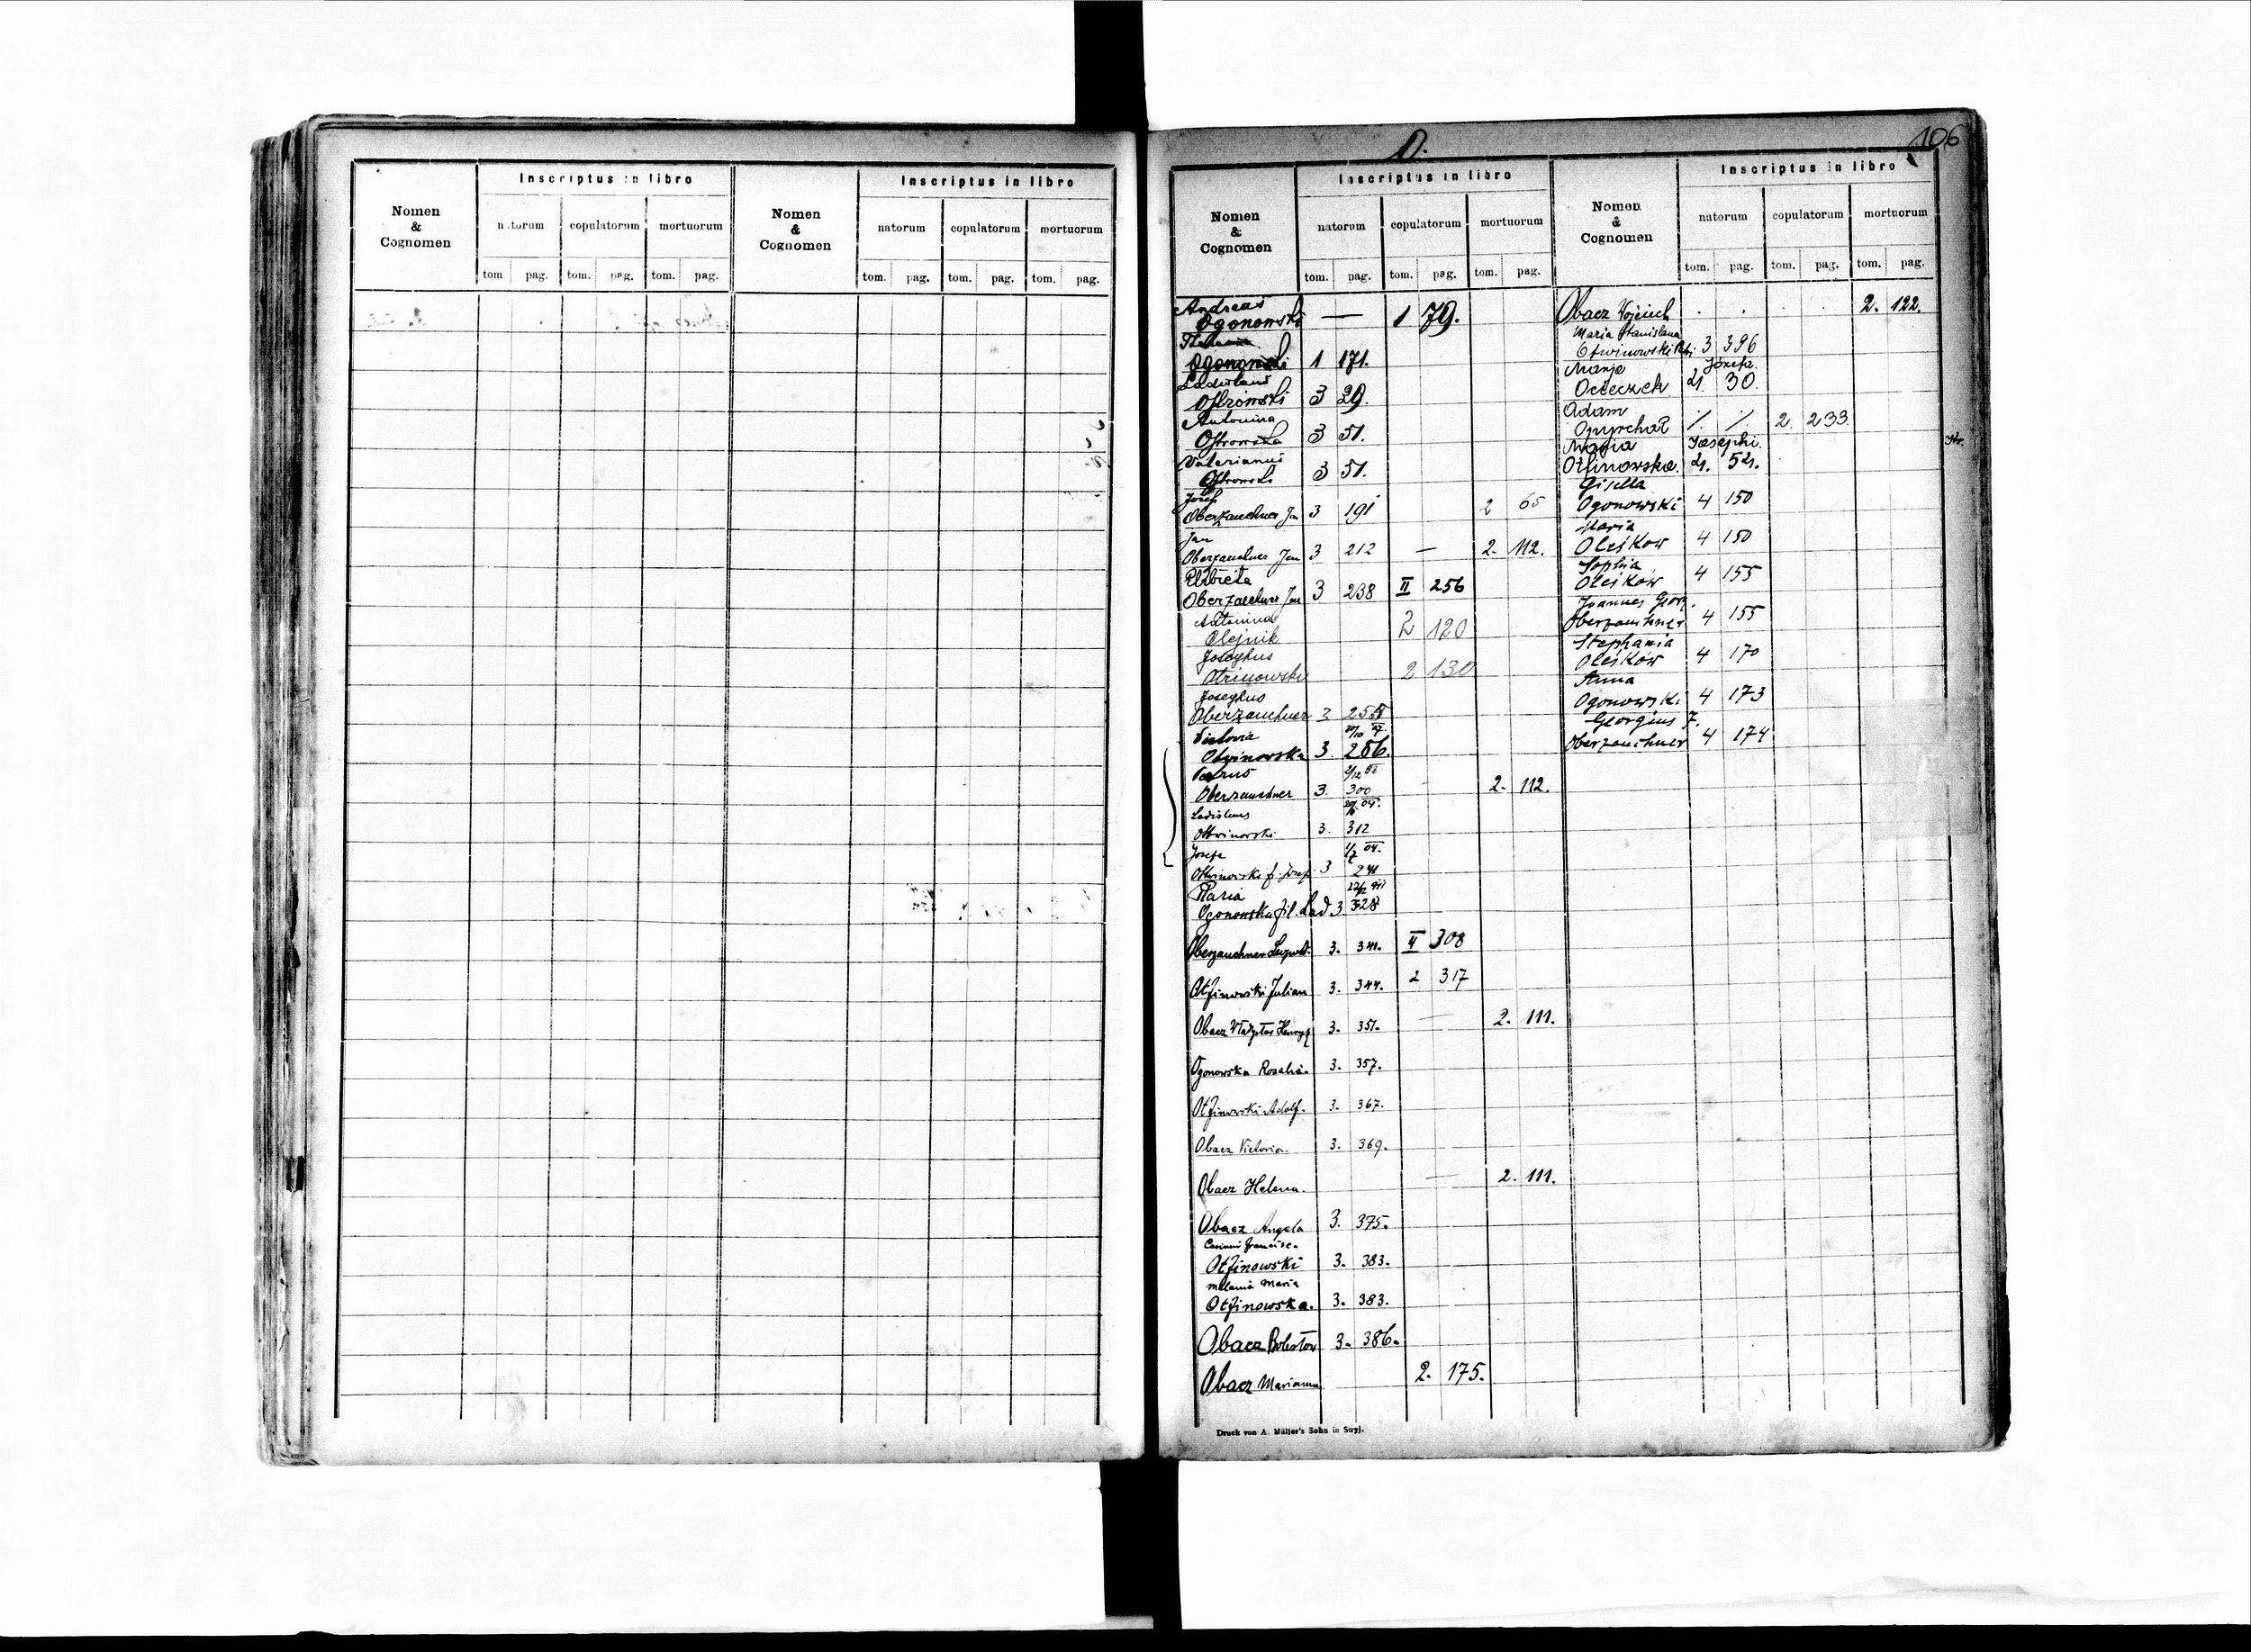 Nomen & Cognomen
Inscriptus in libro
natorum copulatorum mortuorum
tom pag. tom. pag. tom. pag.
Nomen & Cognomen
Inscriptus in libro
natorum copulatorum mortuorum
tom. pag. tom. pag. tom. pag.
O.
106
Nomen & Cognomen
Inscriptus in libro
natorum copulatorum mortuorum
tom. pag. tom. pag. tom. pag.
Andreas
Ogonowski — 1 79.
Ogonowski 1 171.
Ladislaus
Ostrowski 3 29.
Antonina
Ostrowska 3 51.
Valerianus
Ostrowski 3 51.
Józef
Oberzauchner Jan 3 191 2 65
Jan
Oberzauchner Jan 3 212 — 2. 112.
Elżbieta
Oberzauchner Jan 3 238 II 256
Antonina
Olejnik 2 120
Josephus
2 130
Josephus
Oberzauchner 3 255
Victoria
Otfinowska 3. 256.
Petrus
Oberzauchner 3. 300 2. 112.
Ladislaus
Ottwinowski 3. 312
Josefa
3 241
Maria
Ogonowska fil. Lad. 3. 328
Oberzauchner Leopold. 3. 341. II 308
Otfinowski Julian 3. 344. 2 317
Obacz Władysław Henryk 3. 351. — 2. 111.
Ogonowska Rosalia. 3. 357.
Otfinowski Adolf. 3. 367.
Obacz Victoria. 3. 369.
Obacz Helena. — 2. 111.
Obacz Angela 3. 375.
Casimir Francisc.
Otfinowski 3. 383.
Melania Maria
Otfinowska. 3. 383.
Obacz Bolesław 3. 386.
Obacz Marianna 2. 175.
Druck von A. Müller's Sohn in Stryj.
Nomen & Cognomen
Inscriptus in libro
natorum copulatorum mortuorum
tom. pag. tom. pag. tom. pag.
Obacz Wojciech . . . . 2. 122.
Maria Stanislawa
Otwinowski 3 396
Marja Józefa.
Ocieczek 4. 30.
Adam
Opyrchał ·/· ·/· 2. 233.
Maria Josephi.
Otfinowska. 4. 54.
Gisella
Ogonowski 4 150
Maria
Oleśkow 4 150
Sophia
Oleśków 4 155
Joannes Georg.
Oberzauchner 4 155
Stephania
Oleśków 4 170
Anna
Ogonowski 4 173
Georgius J.
Oberzauchner 4 174